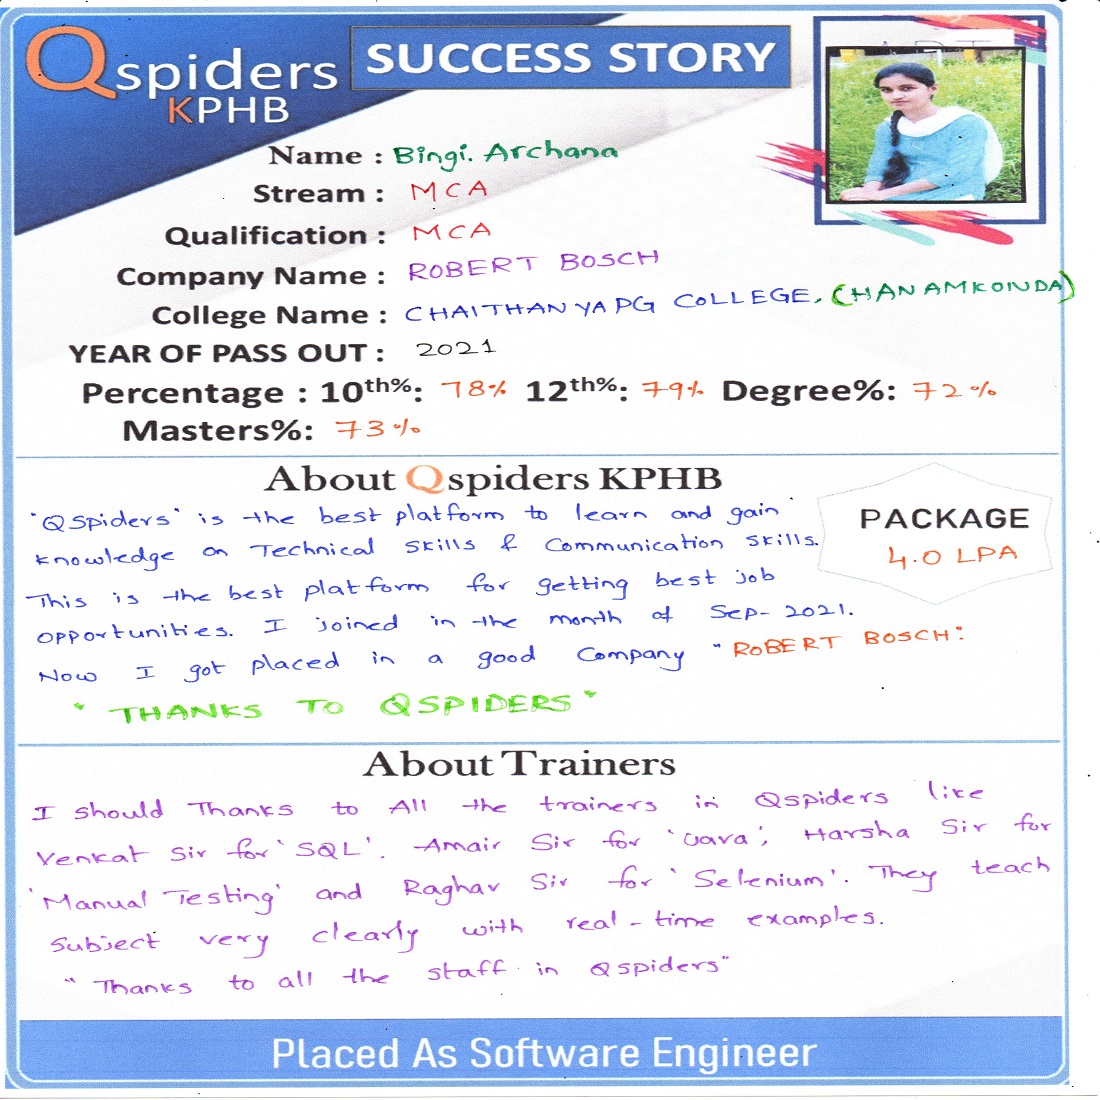 Qspiders
KPHB
SUCCESS STORY
Name : Bingi. Archana
Stream : MCA
Qualification : MCA
Company Name : ROBERT BOSCH
College Name : CHAITHANYA PG COLLEGE, (HANAMKONDA)
YEAR OF PASS OUT : 2021
Percentage : 10th%: 78% 12th%: 79% Degree%: 72%
Masters%: 73%
About Qspiders KPHB
"QSpiders" is the best platform to learn and gain
knowledge on Technical skills & Communication skills.
This is the best platform for getting best job
opportunities. I joined in the month of Sep-2021.
Now I got placed in a good Company "ROBERT BOSCH".
"THANKS TO QSPIDERS"
PACKAGE
4.0 LPA
About Trainers
I should Thanks to All the trainers in Qspiders like
Venkat Sir for 'SQL'. Amair Sir for 'Java', Harsha Sir for
'Manual Testing' and Raghav Sir for 'Selenium'. They teach
Subject very clearly with real-time examples.
"Thanks to all the staff in Qspiders"
Placed As Software Engineer